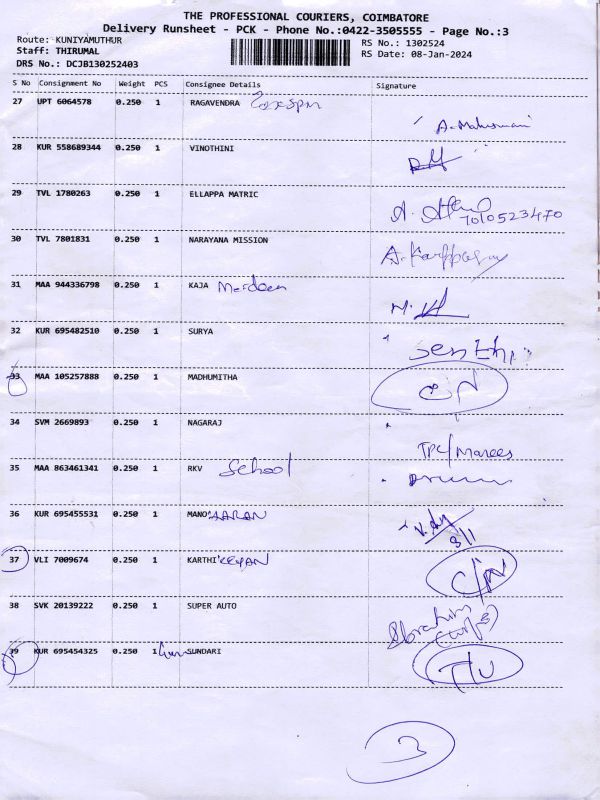 THE PROFESSIONAL COURIERS, COIMBATORE
Delivery Runsheet - PCK - Phone No.:0422-3505555 - Page No.:3
Route: KUNIYAMUTHUR RS No.: 1302524
Staff: THIRUMAL RS Date: 08-Jan-2024
DRS No.: DCJB130252403
S No Consignment No Weight PCS Consignee Details Signature
27 UPT 6064578 0.250 1 RAGAVENDRA
28 KUR 558689344 0.250 1 VINOTHINI
29 TVL 1780263 0.250 1 ELLAPPA MATRIC
7010523470
30 TVL 7801831 0.250 1 NARAYANA MISSION
31 MAA 944336798 0.250 1 KAJA
32 KUR 695482510 0.250 1 SURYA
33 MAA 105257888 0.250 1 MADHUMITHA
34 SVM 2669893 0.250 1 NAGARAJ
35 MAA 863461341 0.250 1 RKV School
36 KUR 695455531 0.250 1 MANO HARAN
8/1
37 VLI 7009674 0.250 1 KARTHI KEYAN
38 SVK 20139222 0.250 1 SUPER AUTO
39 KUR 695454325 0.250 1 SUNDARI
3